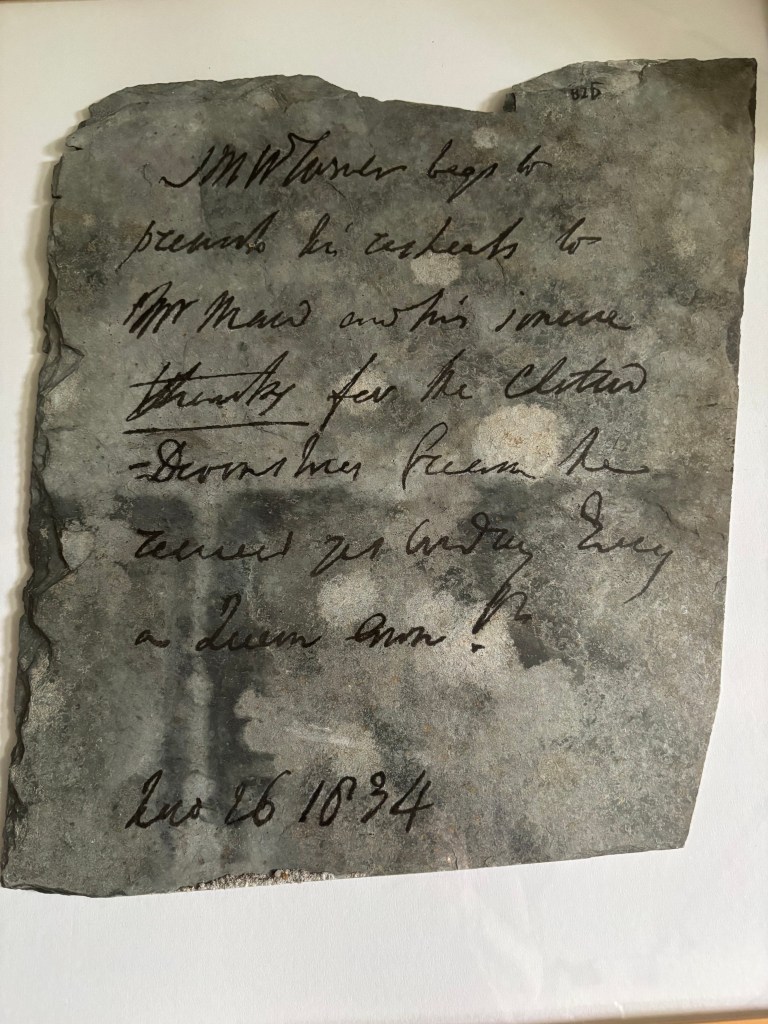 826
JMW Turner begs to
presents his respects to
Mr Maw and his sincere
thanks for the Clotted
=Devonshire Cream he
received yesterday Every
a
26 1834